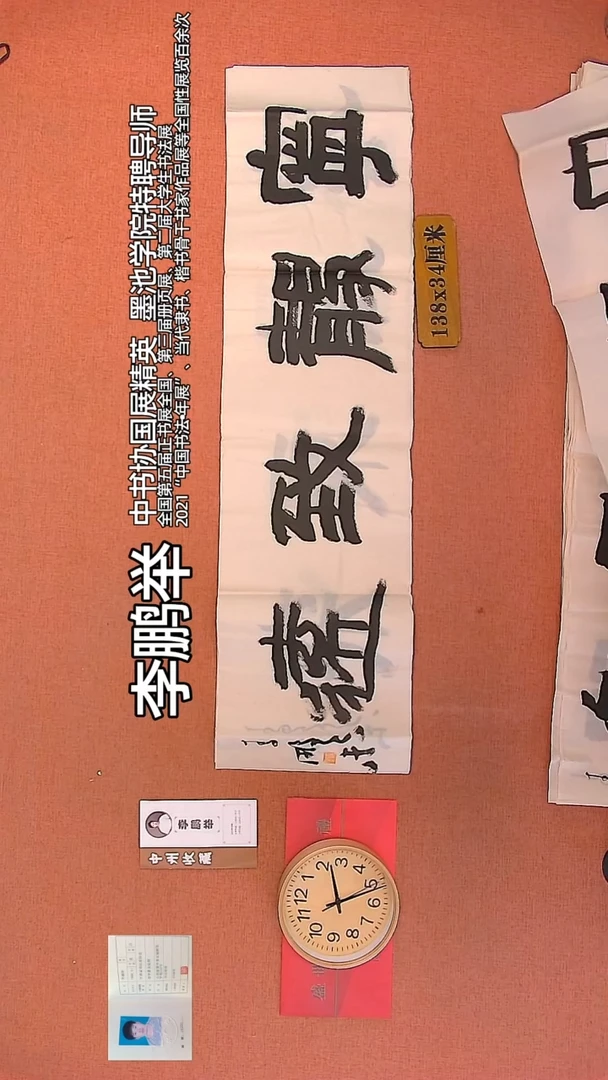 李鹏举
中书协国展精英 墨池学院特聘导师
全国第五届正书展全国、第三届册页展、第二届大学生书法展
2021“中国书法·年展”、当代隶书、楷书骨干书家作品展等全国性展览百余次
寧靜致遠
138x34厘米
李鹏举
中州收藏
12 1 2 3 4 5 6 7 8 9 10 11